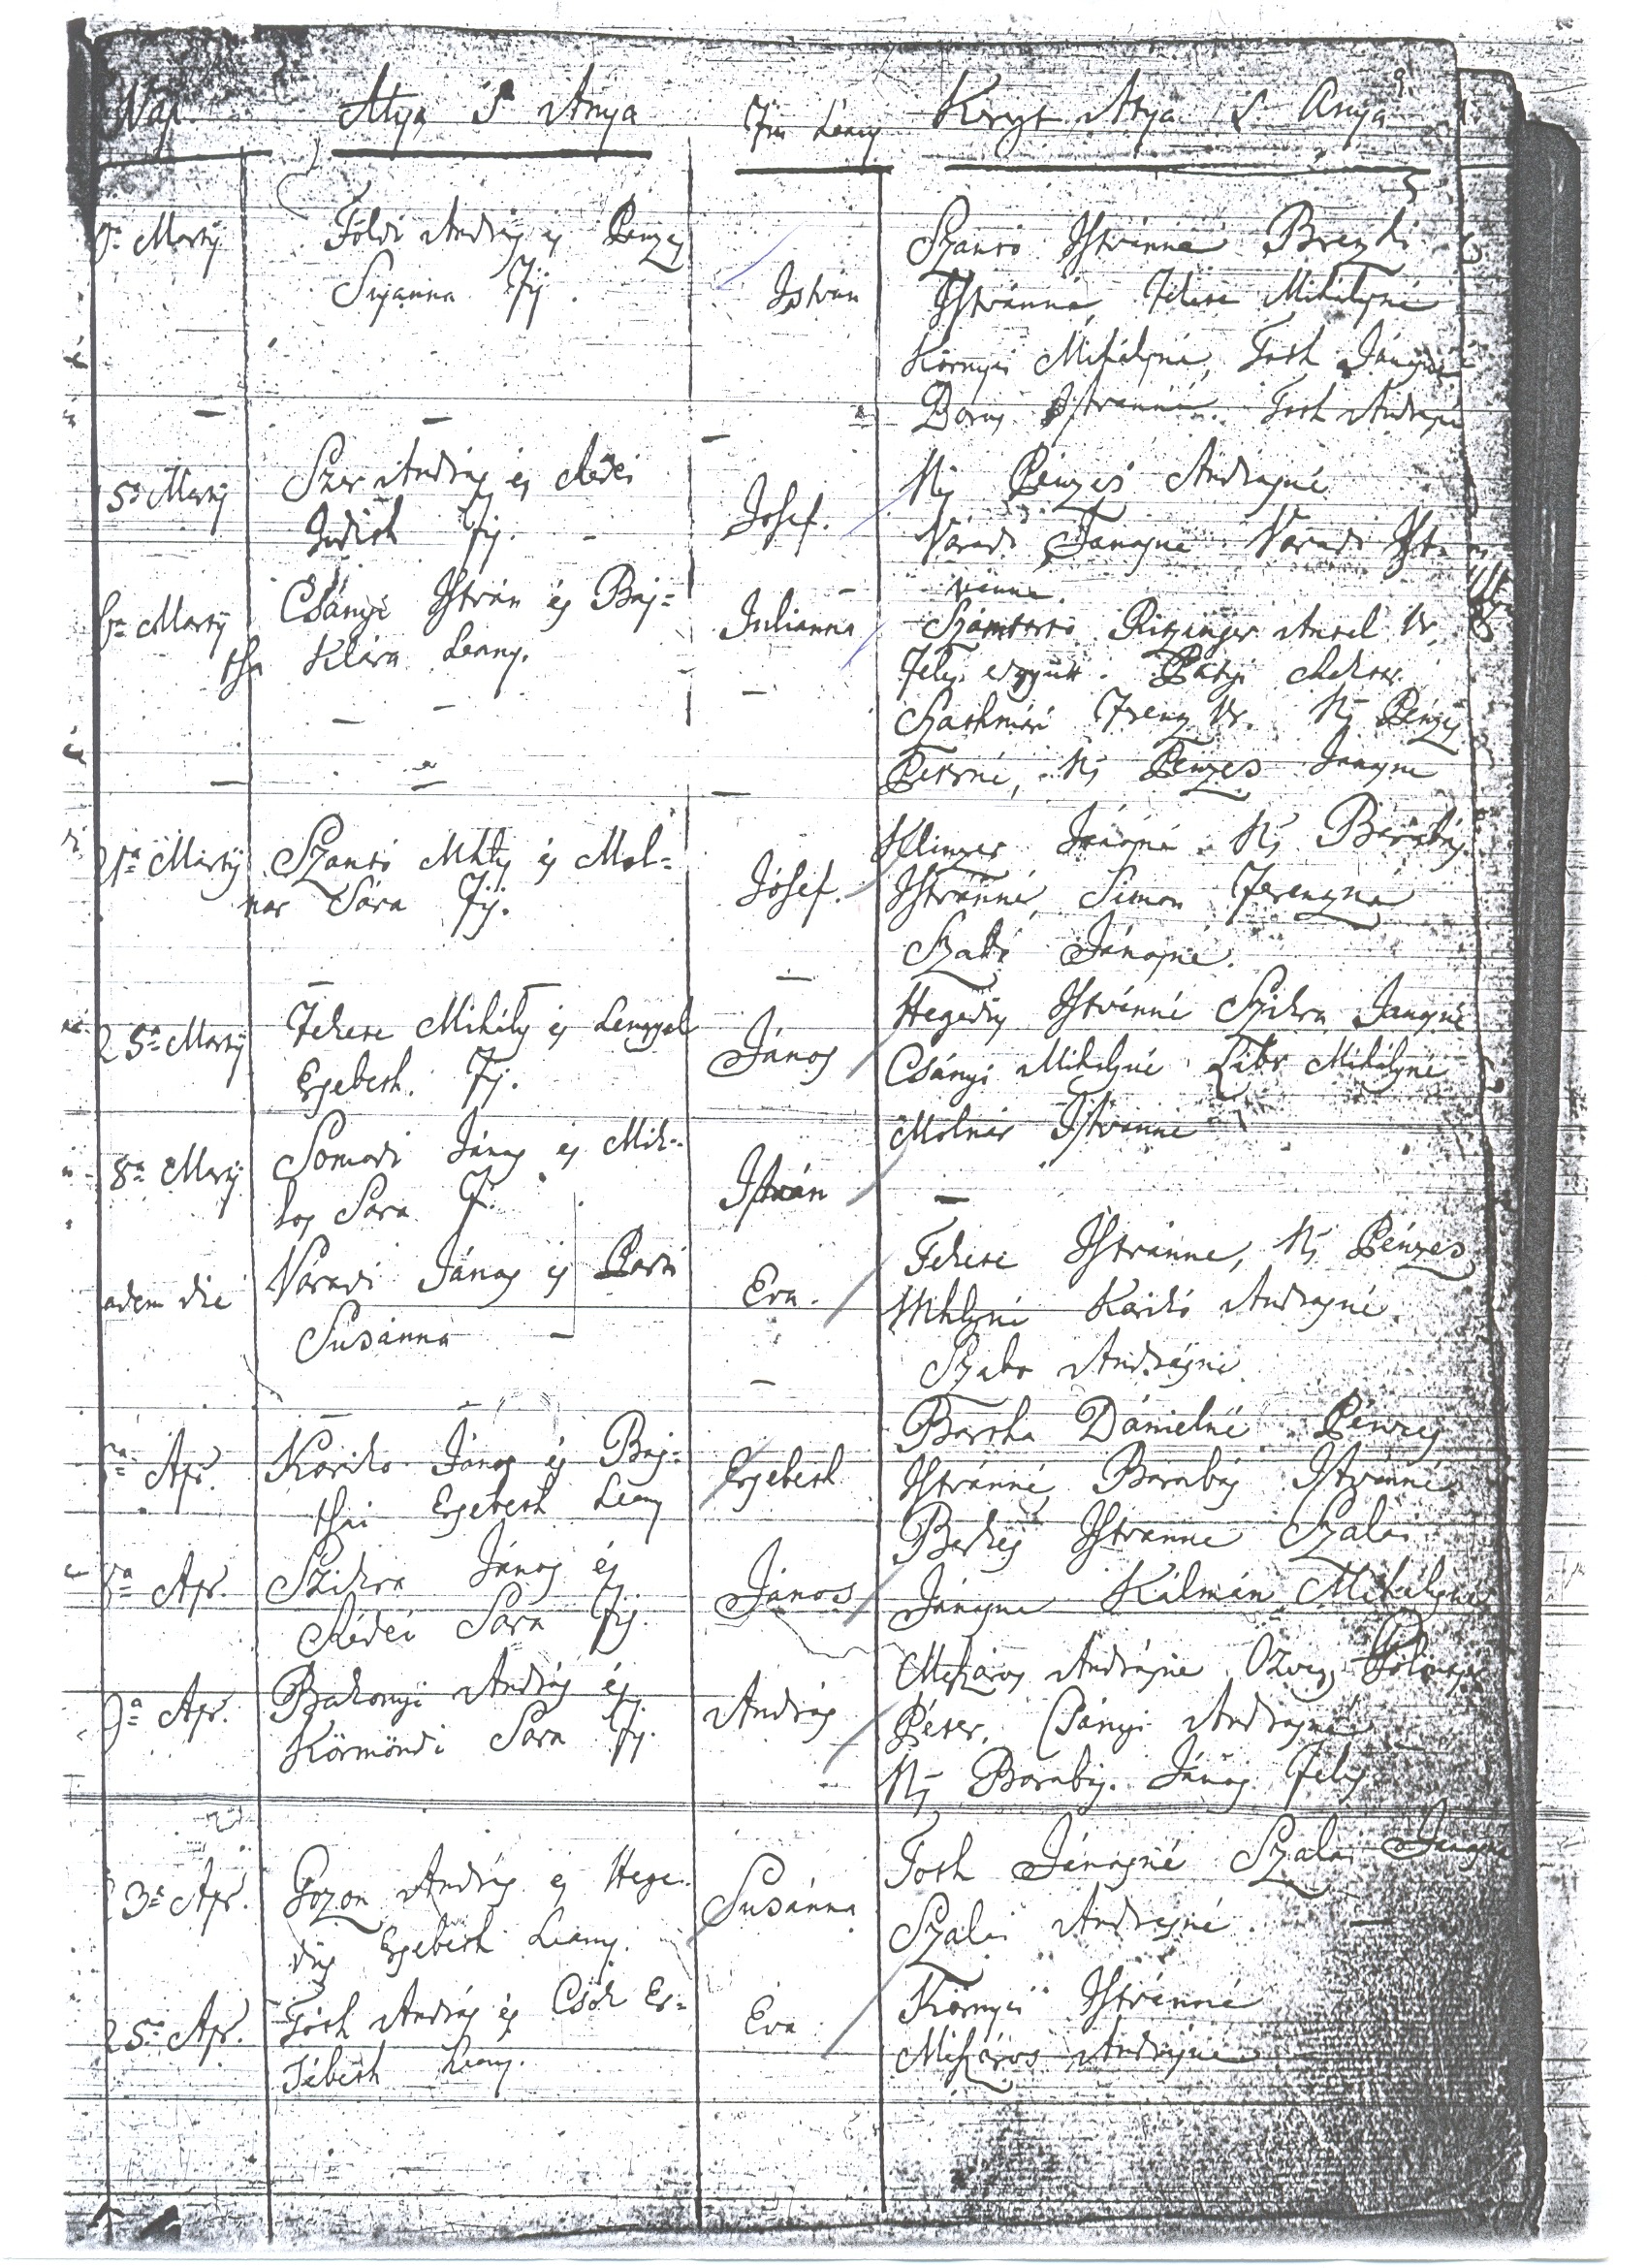 Nap. Atya S Anya Fiu Leany Kereszt Atya S Anya
Marty Földi András és Penzes
Susanna Fij. István
Szantó Istvánné
Istvánné, Fekete Mihályné
Környei Mihályné, Toth Jánosné
Istvánné. Toth Andrásné
5a Marty Szer András és Rédei
Judith Fij. Josef.
Nz Pénzes Andrásné
Váradi Jánosné Váradi Ist-
vánné.
Marty Csányi István és Baj=
tha Klára Leany. Julianna
Ritzinger Antal Ur.
Feles. együtt.
Szathmári Ferenz Ur. Nz Pénzes
Péterné, Nz Penzes Janosne
21a Marty Szantó Mhly és Mol=
nar Sára Fij. Jósef.
Klinger Jánosné. Nz Barabás
Istvánné, Simon Ferenzné
Szabó Jánosné.
25a Marty Fekete Mihály és Lengyel
Ersebeth. Fij. János
Hegedüs Istvánné Szikra Janosné
Csányi Mihályné Mihályné
Molnár Istvanné
8a Marty Somodi János és Mik=
los Sára. F. István
adem die Váradi János és
Susánna Eva.
Fekete Istvánne, Nz Pénzes
Mhlyné Karikó Andrasné.
Szabo Andrásné.
Apr. Kariko János és Baj=
thai Ersebeth Leany Ersebeth
Bartha Dánielné Pénzes
Istvánné, Barabás Istvánné
Istvanne Szalai
Apr. Szikra János és
Rédei Sára Fij. János
Jánosne Kálmán Mihályné
Mészáros Andrásné Özvegy
9a Apr. Bakonyi András és
Körmöndi Sara Fij. András
Péter, Csányi Andrásné
Nz Barabás János Feles
3a Apr. Gozon András és Hege=
düs Ersebeth Leany. Susánna
Toth Jánosné Szalai Jánosné
Szalai Andrásné.
25a Apr. Tóth András és Csók Er=
sébeth Leany. Eva
Környei Istvánné
Mészáros Andrásné